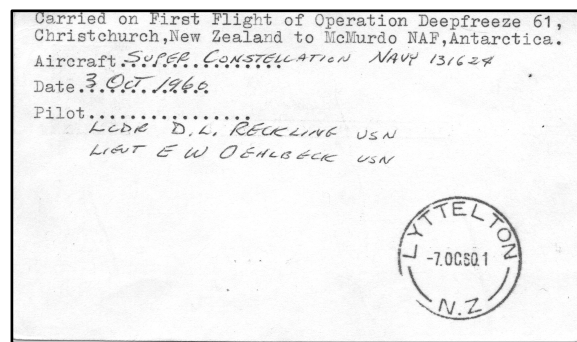 Carried on First Flight of Operation Deepfreeze 61,
Christchurch,New Zealand to McMurdo NAF,Antarctica.
Aircraft SUPER CONSTELLATION NAVY 131624
Date 3 OCT 1960
Pilot................
LCDR D.L. RECKLING USN
LIEUT E W OEHLBECK USN
LYTTELTON
-7.OC60.1
N.Z